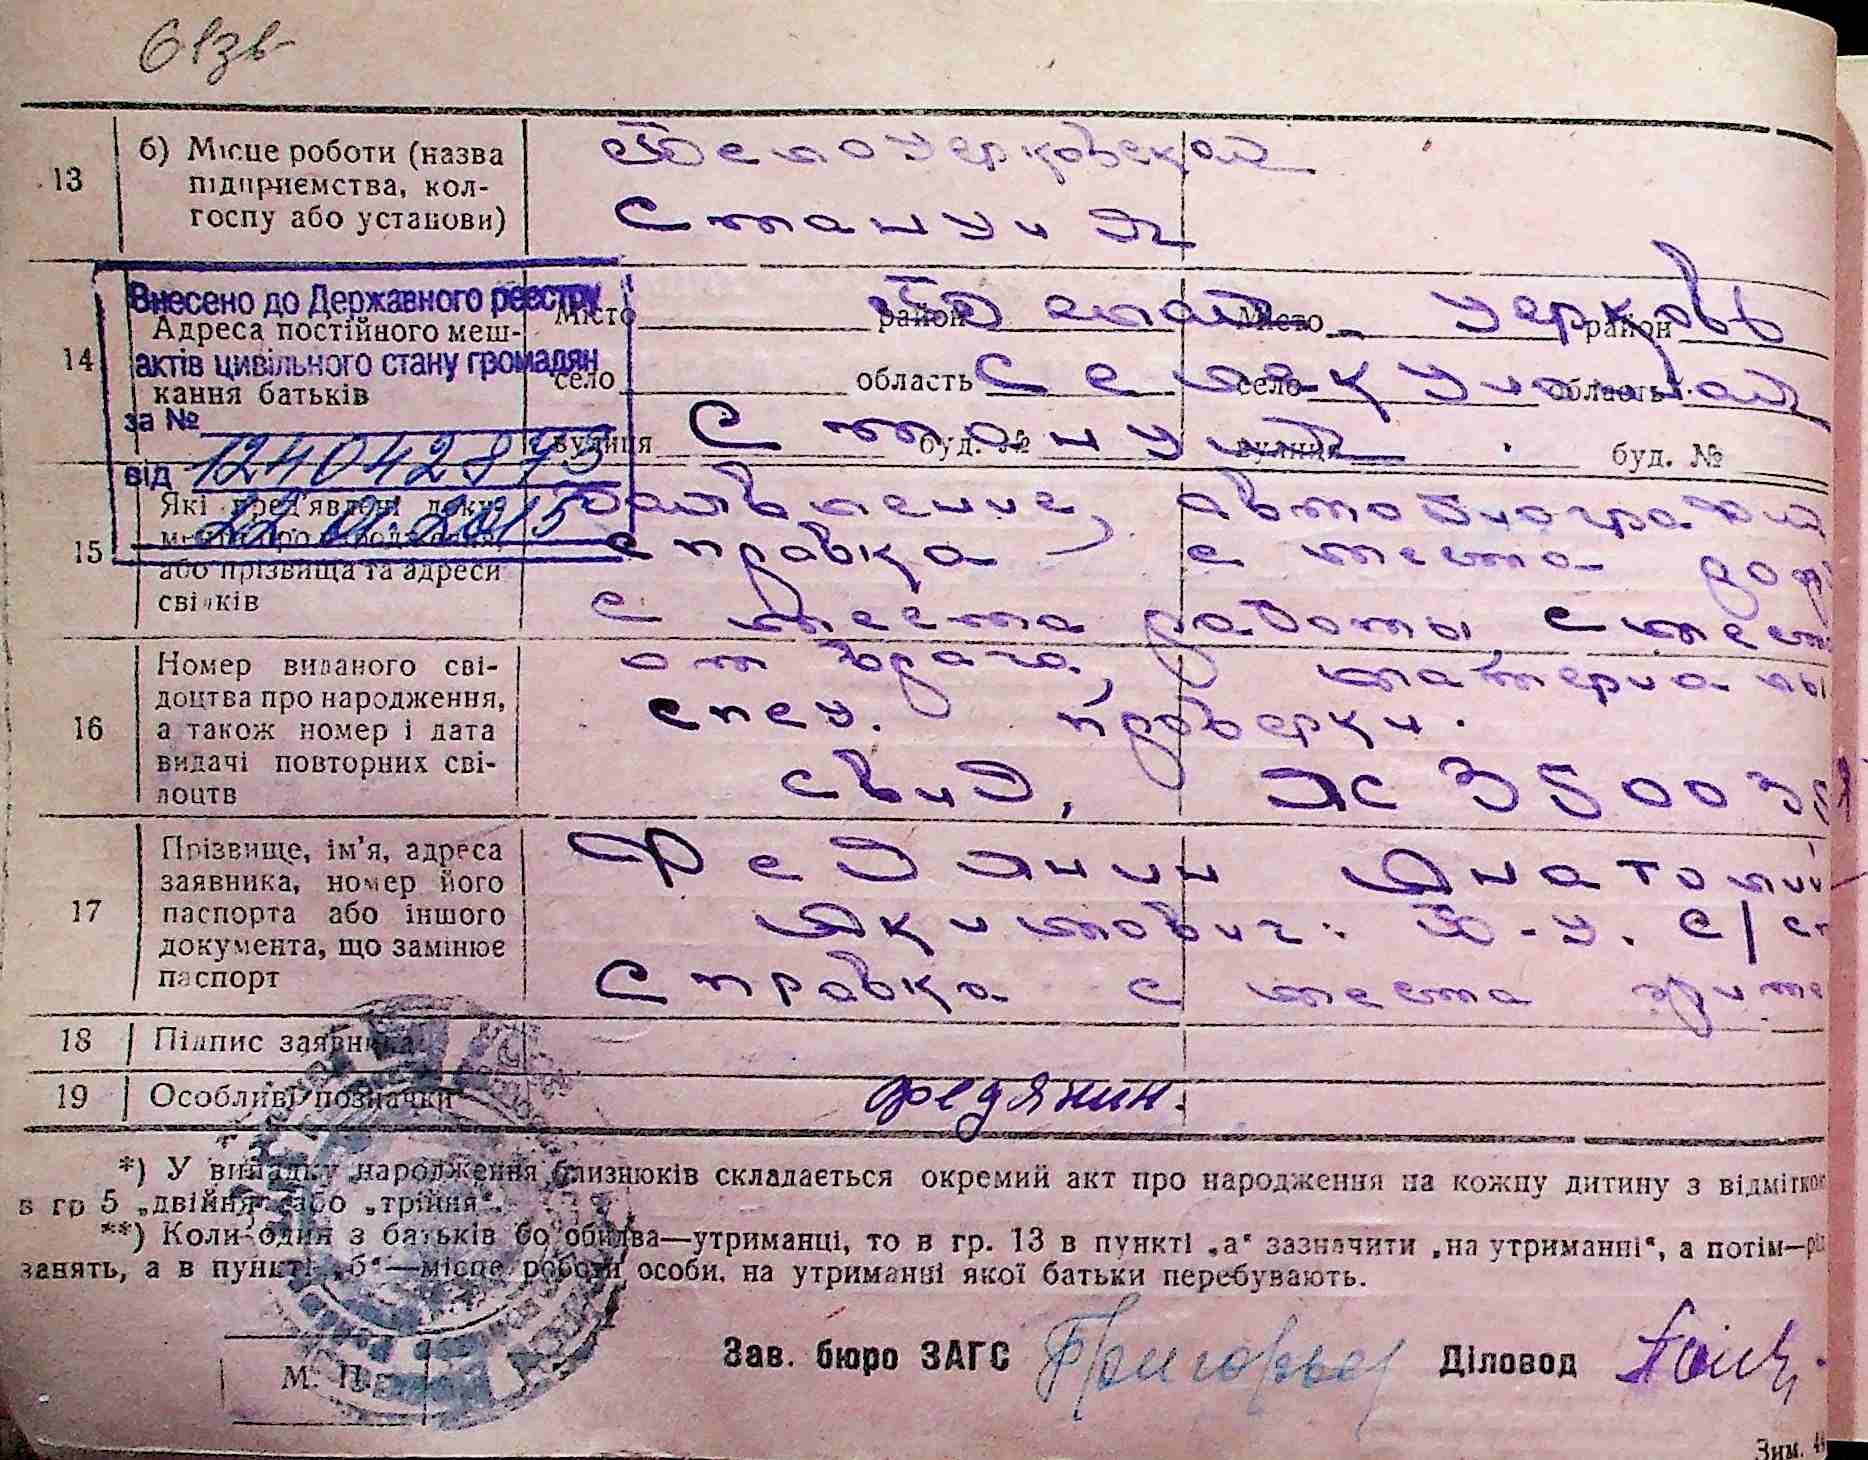 61зв
13
б) Місце роботи (назва
підприємства, кол-
госпу або установи)
Белоцерковская
Станция
Внесено до Державного реєстру
актів цивільного стану громадян
за № 12404287
від 22 01 2015
14
Адреса постійного меш-
кання батьків
Місто район Місто район
село область село область
вулиця буд. № вулиця буд. №
Белая Церковь
Селекционная
Станция
15
Які пред'явлені доку-
або прізвища та адреси
свідків
Заявление, автобиография
справка с места
с места работы с мест
от врача, материалы
спец. проверки.
16
Номер виданого сві-
доцтва про народження,
а також номер і дата
видачі повторних сві-
доцтв
свид, ЯС 35003
17
Прізвище, ім'я, адреса
заявника, номер його
паспорта або іншого
документа, що замінює
паспорт
Федянин Анатолий
Акимович. Б-Ц. с/с
Справка с места жите
18
Підпис заявника
19
Особливі позначки
Федянин.
*) У випадку народження близнюків складається окремий акт про народження на кожну дитину з відміткою
в гр 5 „двійня“ або „трійня“.
**) Коли один з батьків бо обидва—утриманці, то в гр. 13 в пункті „а“ зазначити „на утриманні“, а потім—рід
занять, а в пункті „б“—місце роботи особи, на утриманні якої батьки перебувають.
М. П.
Зав. бюро ЗАГС
Діловод
Зим.